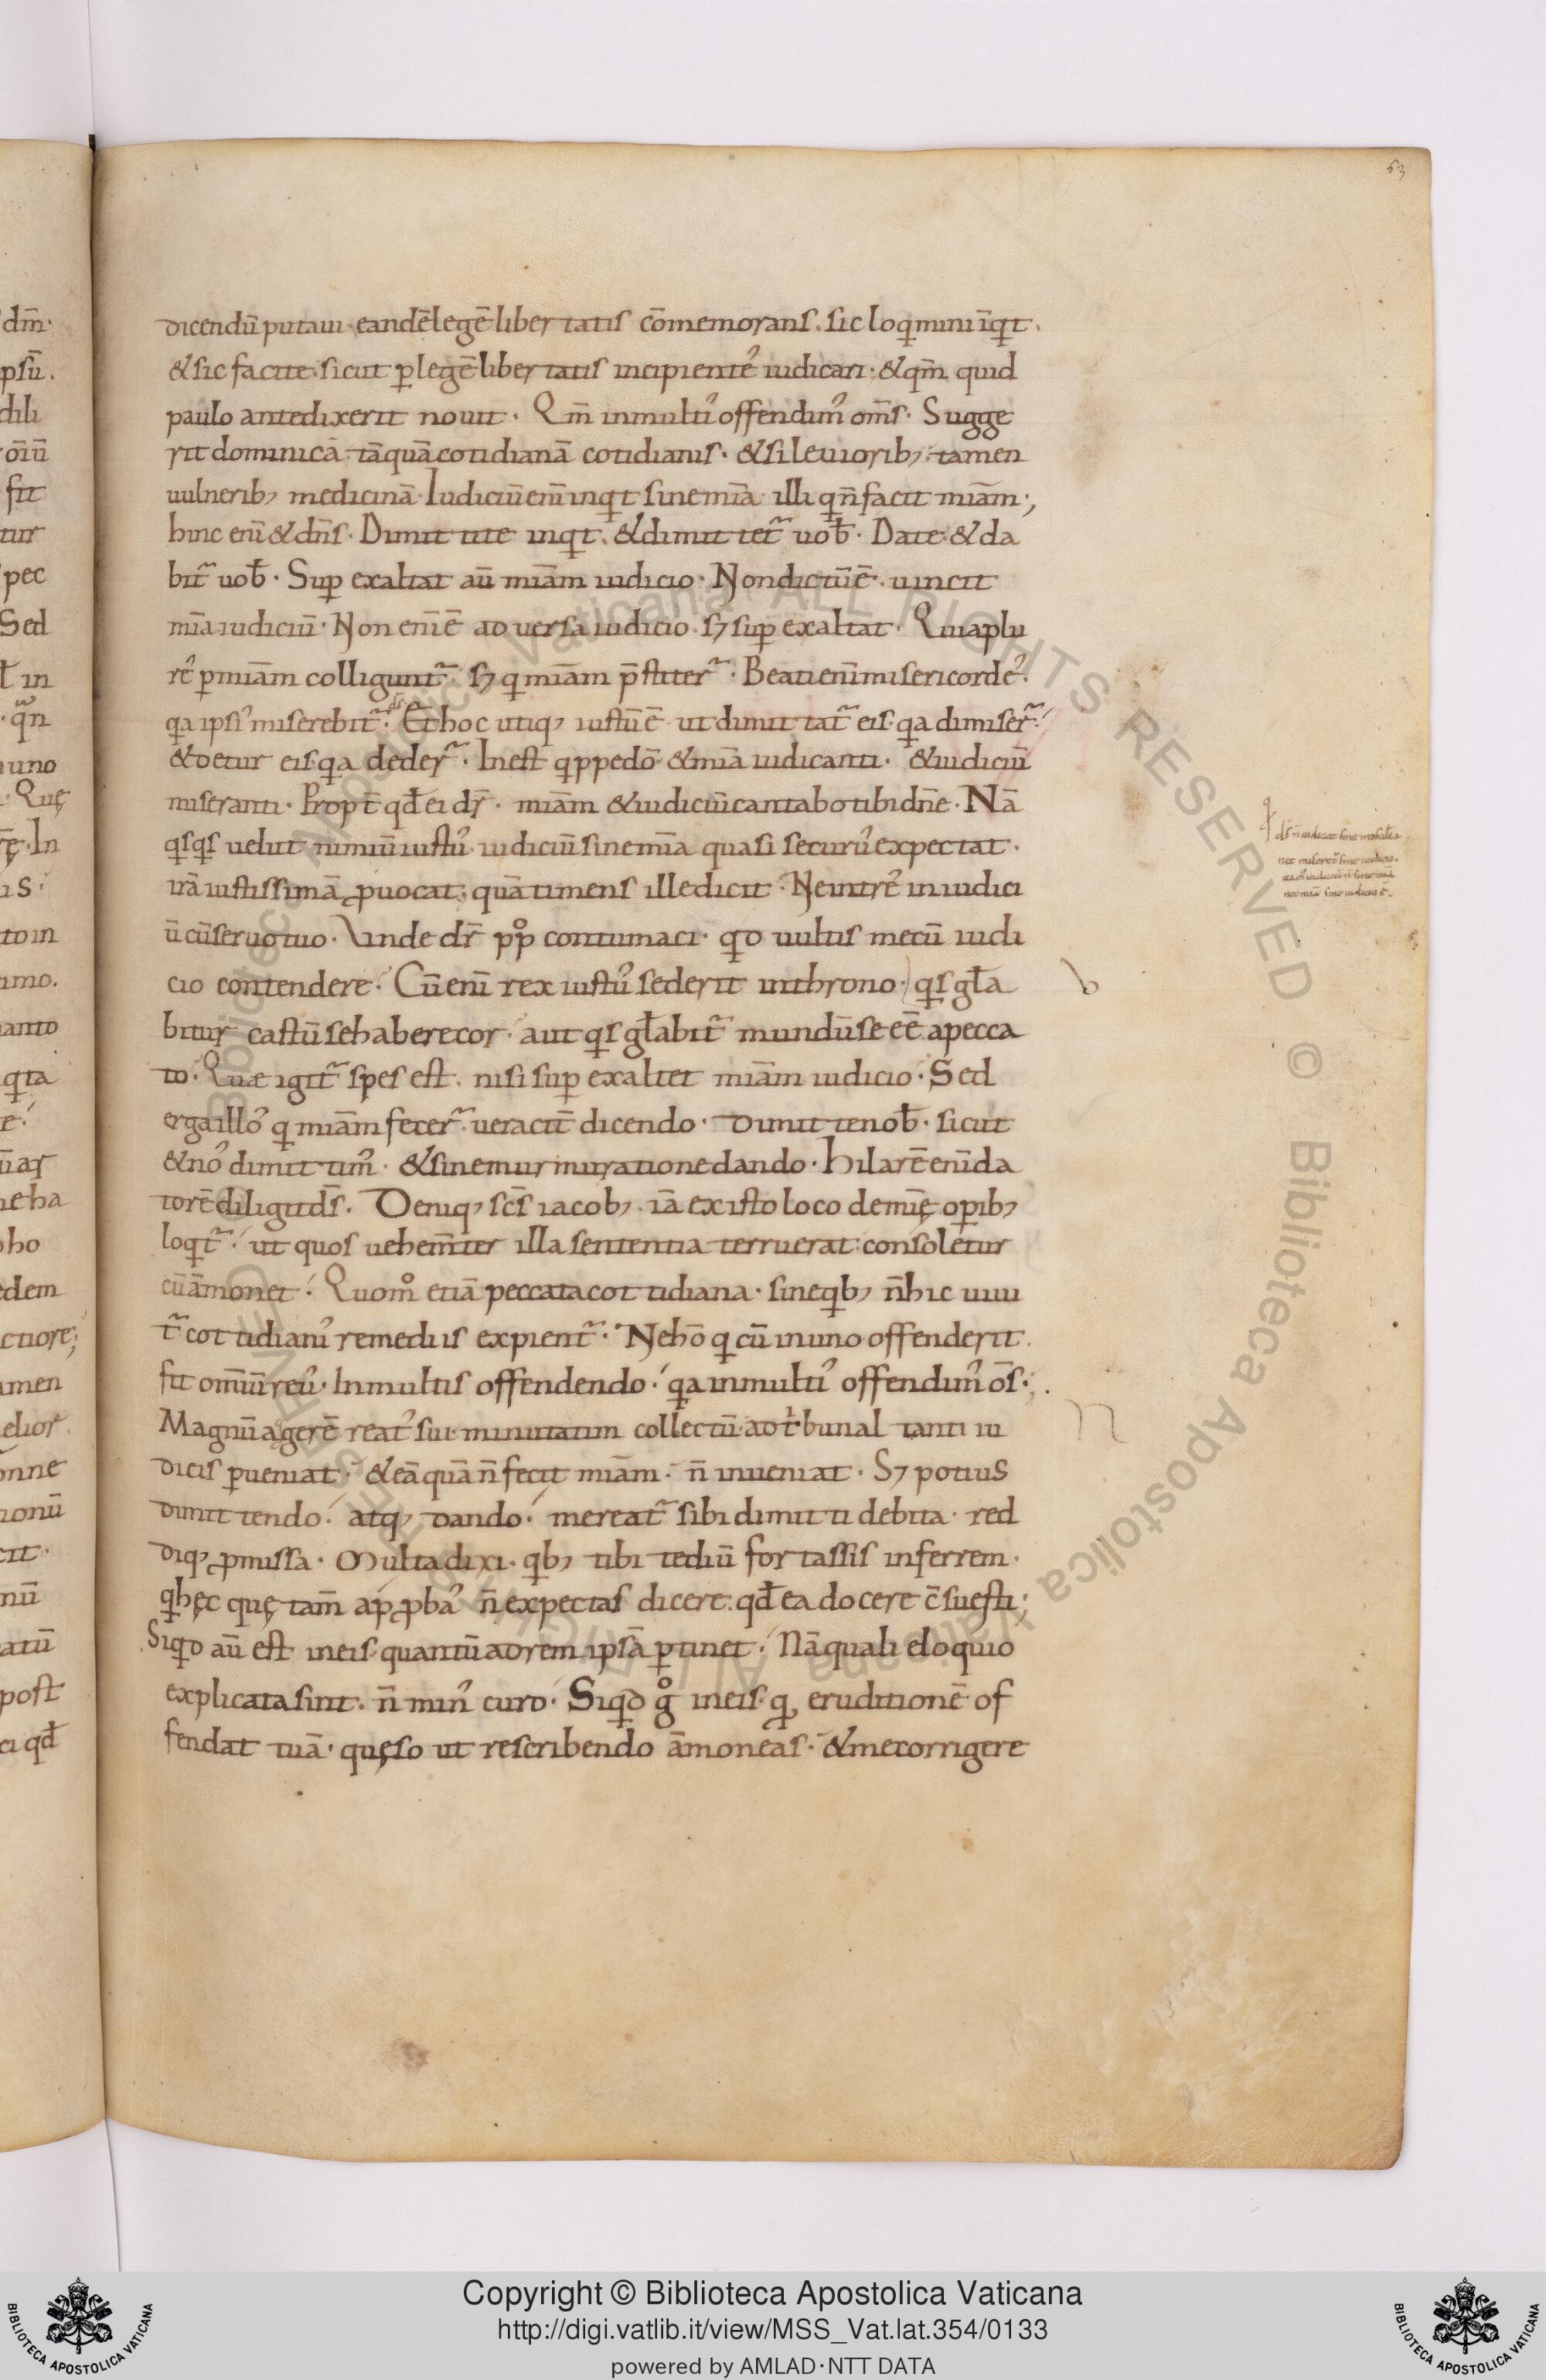 63
dicendū putaui eandē legē libertatis cōmemorans. sic loq̄mini īqt.
& sic facite. sicut p legē libertatis incipientes iudicari· & qm̄ quid
paulo antedixerit nouit· Qm̄ in multis offendim᾽ om̄s· Sugge
rit dominicā tāquā cotidianā cotidianis· & si leuiorib; tamen
uulnerib; medicinā· Iudiciū enī inqt sine mīa illi q n̄ facit miām·,
hinc enī & dn̄s· Dimittite inqt. & dimittet᷑ uob̄· Date & da
bit᷑ uob̄· Sup exaltat aū miām iudicio· Non dictū ē· uincit
mīa iudiciū· Non enī ē aduersa iudicio. s; sup exaltat· Quia plu
res p miām colligunt᷑· s; q miām p̄stiter᷑· Beati enī misericordes·
qa ipsis miserebit᷑ ds· Et hoc utiq; iustū ē ut dimittat᷑ eis· qa dimiser᷑·
& detur eis qa deder᷑· Inest qppe dō & mīa iudicanti· & iudiciū
miseranti· Propt̄ qd̄ ei dr̄· miām & iudiciū cantabo tibi dn̄e· Nā
qsqs uelut nimiū iustus iudiciū sine mīa quasi securus expectat·
irā iustissimā puocat; quā timens ille dicit· Ne intres in iudici
ū cū seruo tuo· Unde dr̄ pp̊ contumaci· qd uultis mecū iudi
cio contendere· Cū enī rex iustus sederit in throno· qs gl̄a
bitur castū se habere cor· aut qs gl̄abit᷑ mundū se eē a pecca
to· Quæ igit᷑ spes est. nisi sup exaltet miām iudicio· Sed
erga illos q miām fecer᷑ ueracit̄ dicendo· dimitte nob̄· sicut
& nos dimittim᾽· & sine murmuratione dando· hilarē enī da
torē diligit ds̄. Deniq; scs̄ iacob; iā ex isto loco de mīę opib;
loqt᷑· ut quos uehem̄ter illa sententia terruerat consoletur
cū āmonet· Quom̊ etiā peccata cottidiana· sine qb; n̄ hic uiui
t᷑ cottidianis remediis expient᷑· Ne hō q cū in uno offenderit.
fit omniū reus· In multis offendendo· qa in multis offendim᾽ ōs·,
Magnū agerē reatus sui minutatim collectū ad tbunal tanti iu
dicis pueniat· & eā quā n̄ fecit miām· n̄ inueniat· S; potius
dimittendo· atq; dando· mereat᷑ sibi dimitti debita· red
diq; pmissa· Multa dixi· qb; tibi tediū fortassis inferrem·
q hęc quę tam̄ approbas n̄ expectas dicere. qd̄ ea docere c̄suesti;
Siqd aū est in eis quantū ad rem ipsā ptinet· Nā quali eloquio
explicata sint. n̄ min᾽ curo· Siqd g̊ in eis· q eruditionē of
fendat tuā· quęso ut rescribendo āmoneas· & me corrigere
Copyright © Biblioteca Apostolica Vaticana
http://digi.vatlib.it/view/MSS_Vat.lat.354/0133
powered by AMLAD·NTT DATA
BIBLIOTECA APOSTOLICA VATICANA
BIBLIOTECA APOSTOLICA VATICANA